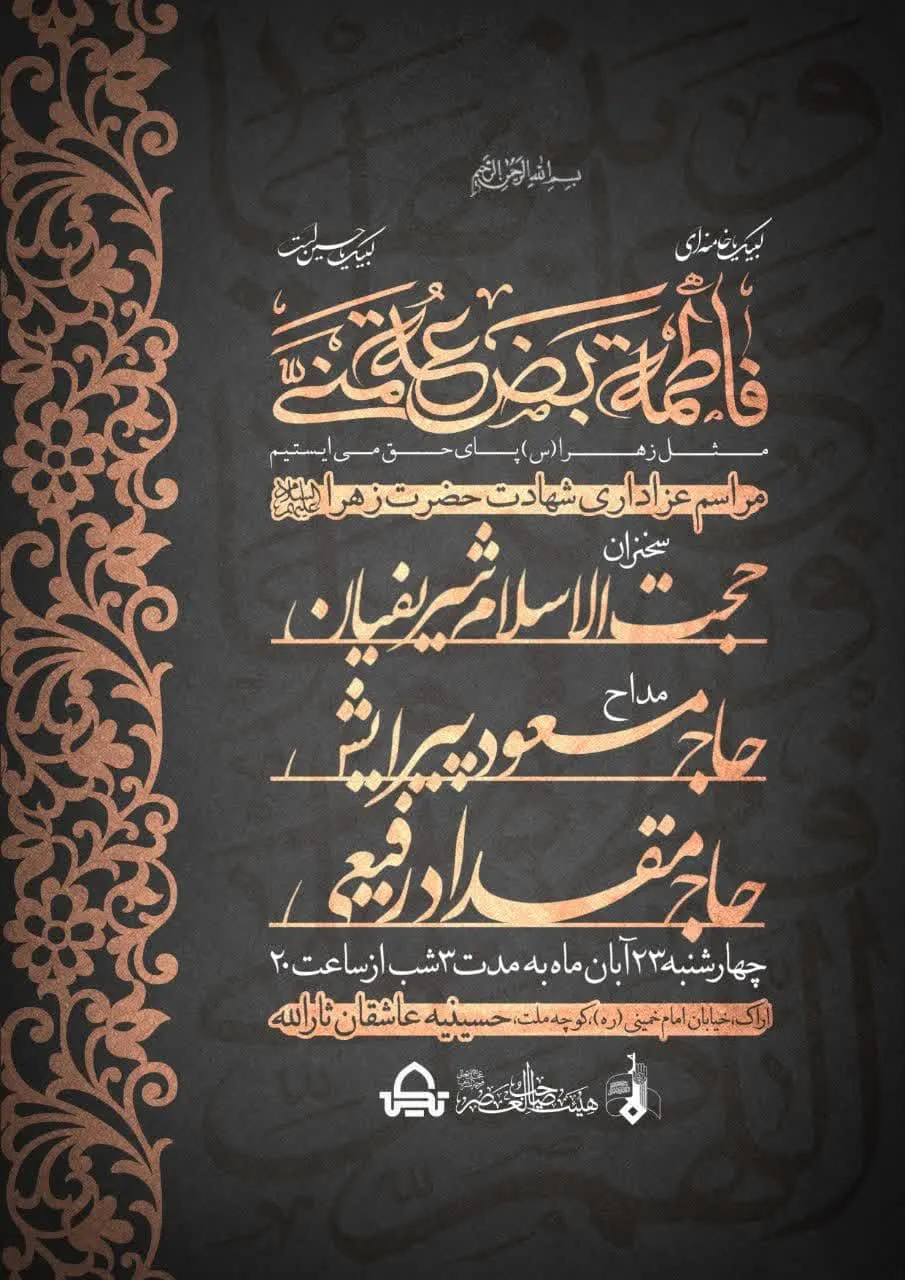 بسم الله الرحمن الرحیم
لبیک یا خامنه‌ای
لبیک یا حسین است
فاطمة بضعة منّي
مثل زهرا (س) پای حق می ایستیم
مراسم عزاداری شهادت حضرت زهرا سلام‌الله‌علیها
سخنران
حجت الاسلام شریفیان
مداح
حاج مسعود پیرایش
حاج مقداد رفیعی
چهارشنبه ۲۳ آبان ماه به مدت ۳ شب از ساعت ۲۰
اراک، خیابان امام خمینی (ره)، کوچه ملت، حسینیه عاشقان ثارالله
هیئت صاحب العصر